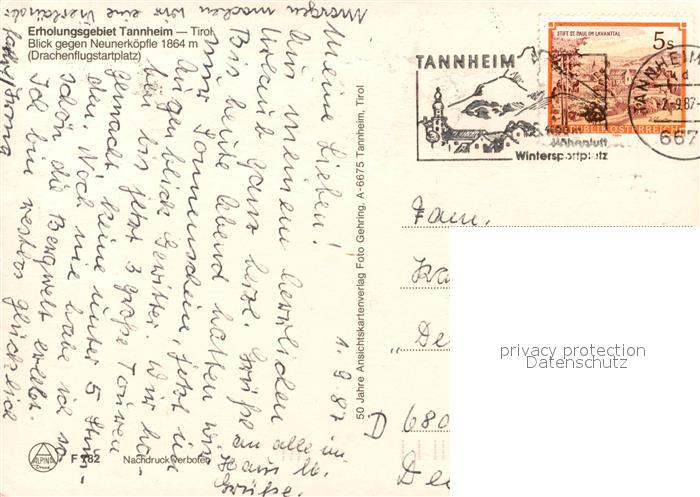 Morgen machen wir eine Vierländer
fahrt
Erholungsgebiet Tannheim — Tirol
Blick gegen Neunerköpfle 1864 m
(Drachenflugstartplatz)
1.9.87
Meine Lieben!
Aus meinem herrlichen
Urlaub ganz herzl. Grüße
Bis heute abend hatten wir
nur Sonnenschein, jetzt im
Augenblick Gewitter. Wir ha-
ben bis jetzt 3 große Touren
gemacht, keine unter 5 Stun-
den. Noch nie habe ich so
schön die Bergwelt erlebt.
Ich bin restlos glücklich
an alle im
Haus
Grüße.
50 Jahre Ansichtskartenverlag Foto Gehring, A-6675 Tannheim, Tirol
ALPINA
F 782
Nachdruck verboten
TANNHEIM
Höhenluft
Wintersportplatz
STIFT ST. PAUL IM LAVANTTAL
5s
REPUBLIK ÖSTERREICH
TANNHEIM
-2.-9.87
667
Fam.
"De
D 680
privacy protection
Datenschutz